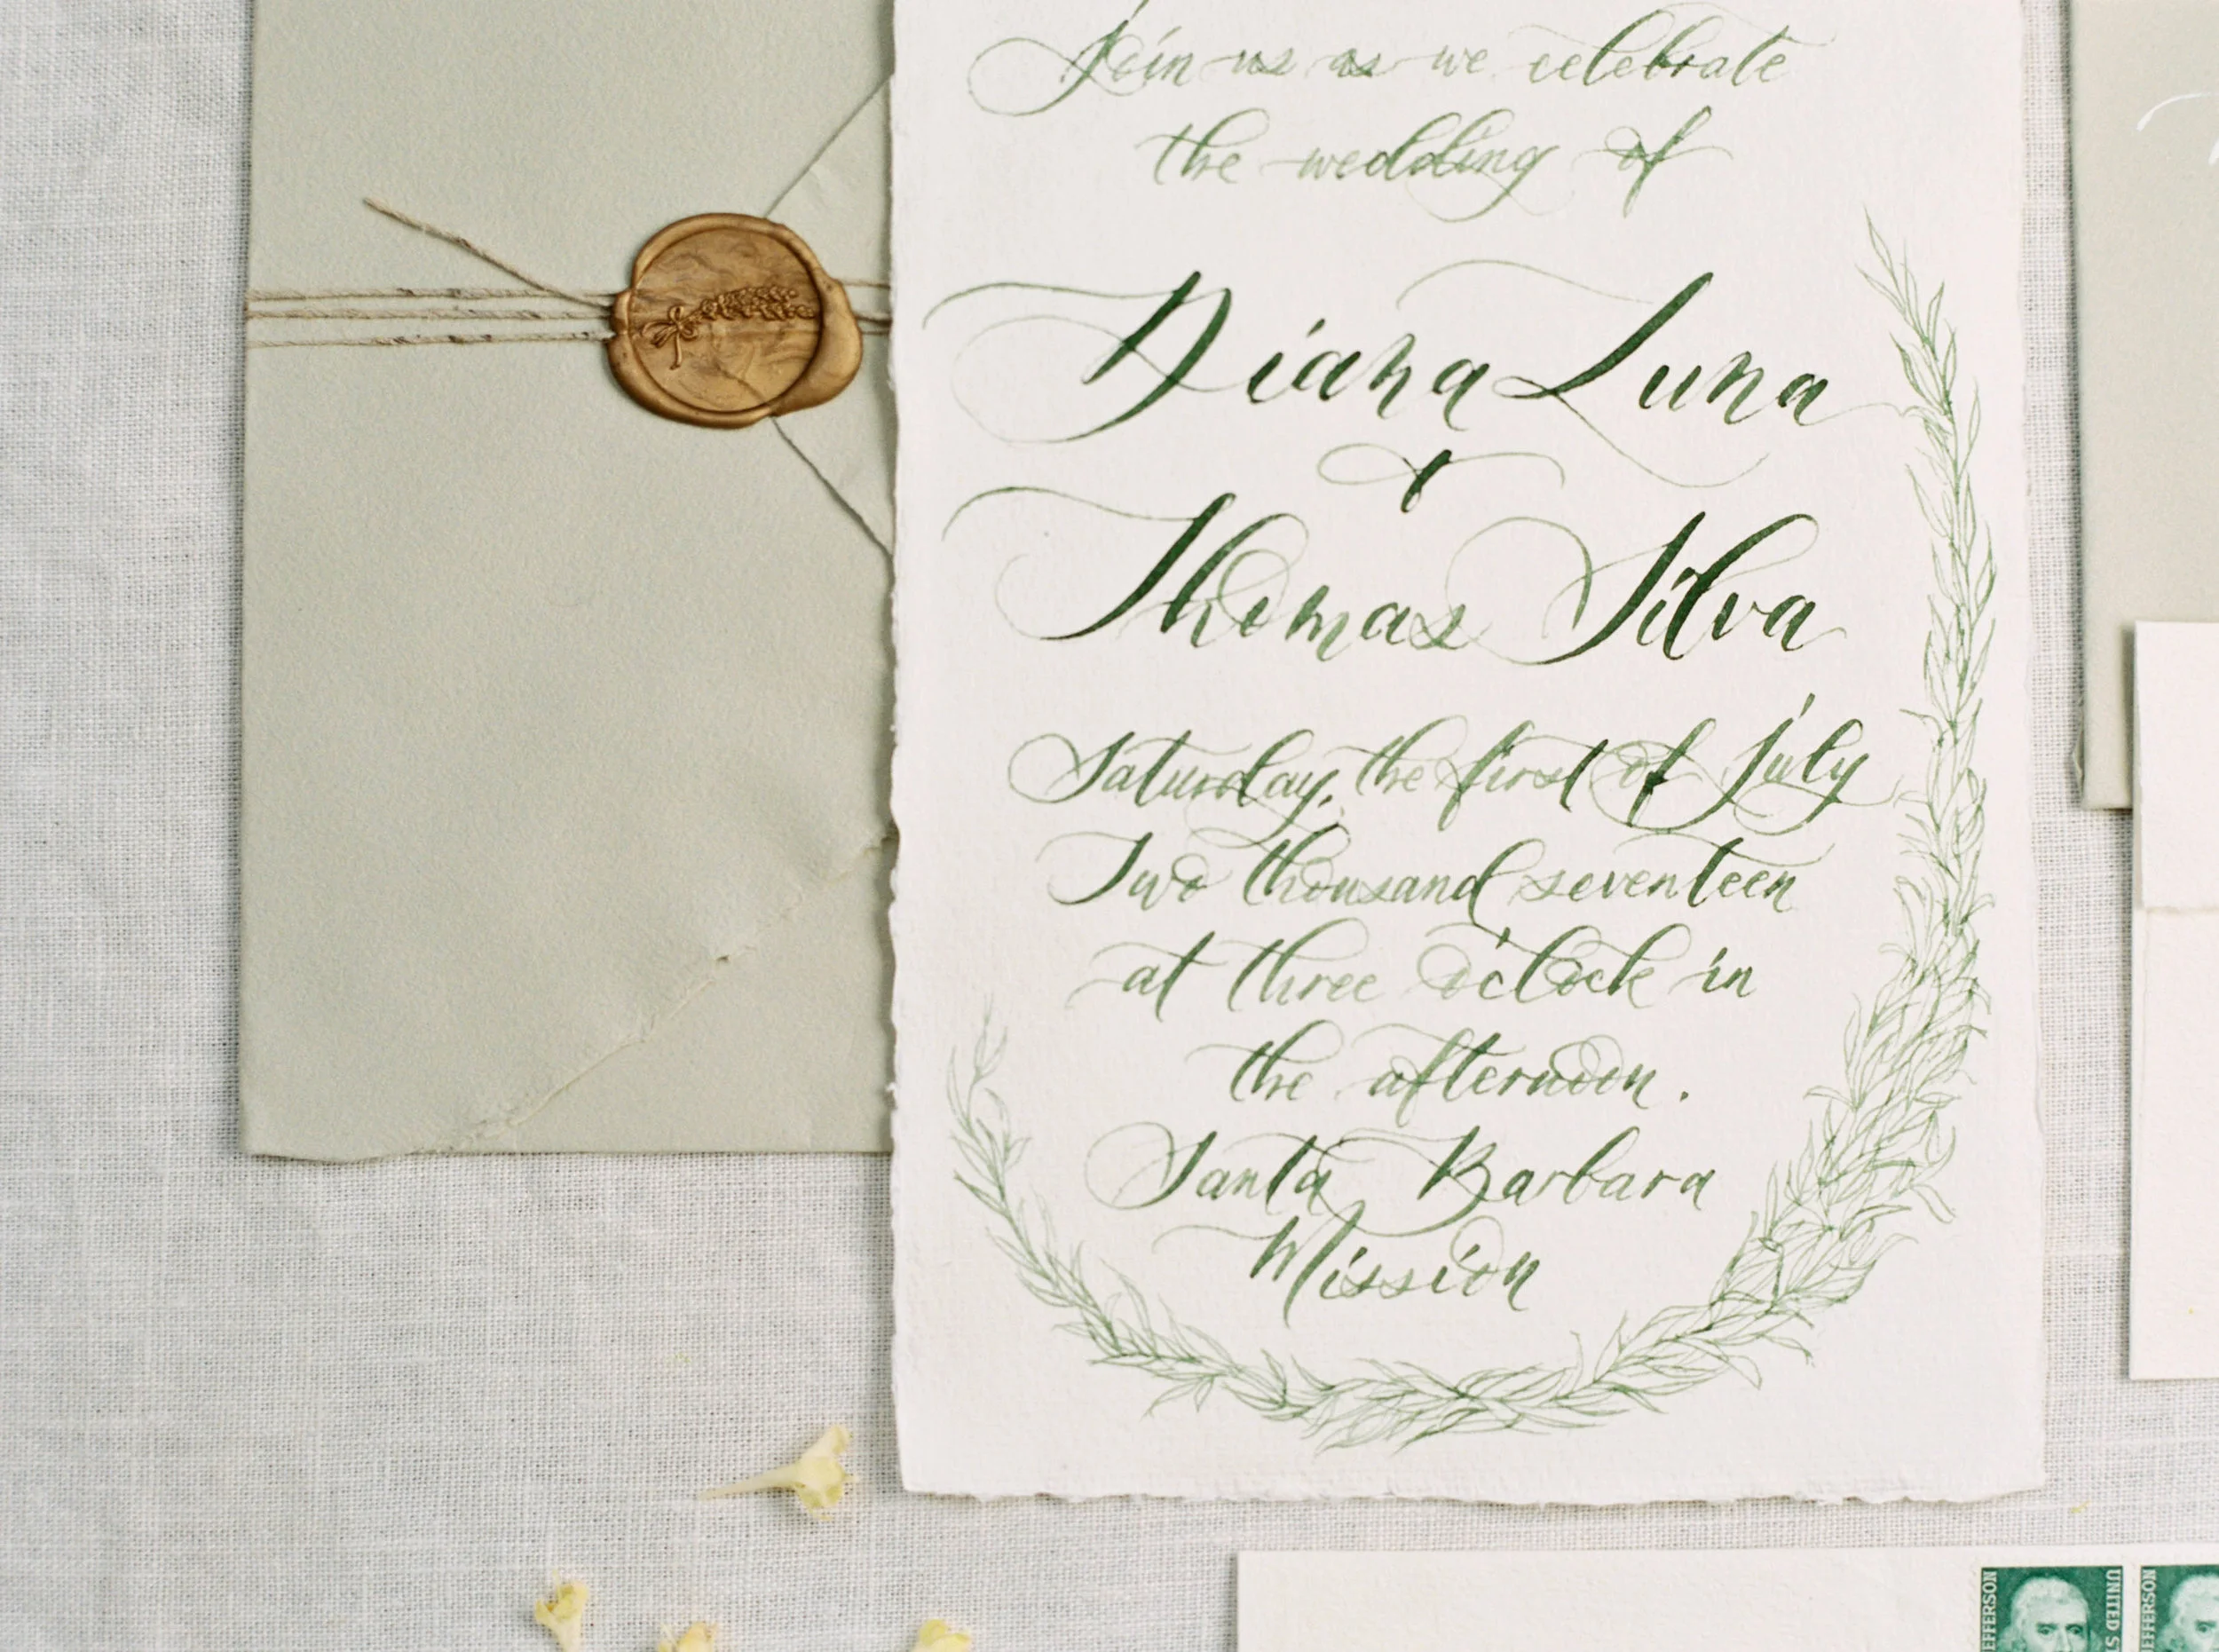 Join us as we celebrate
the wedding of
Diana Luna
&
Thomas Silva
Saturday, the first of July
Two thousand seventeen
at three o'clock in
the afternoon.
Santa Barbara
Mission
JEFFERSON
UNITED S
FFERSON